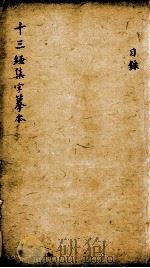 目錄
十三經集字摹本